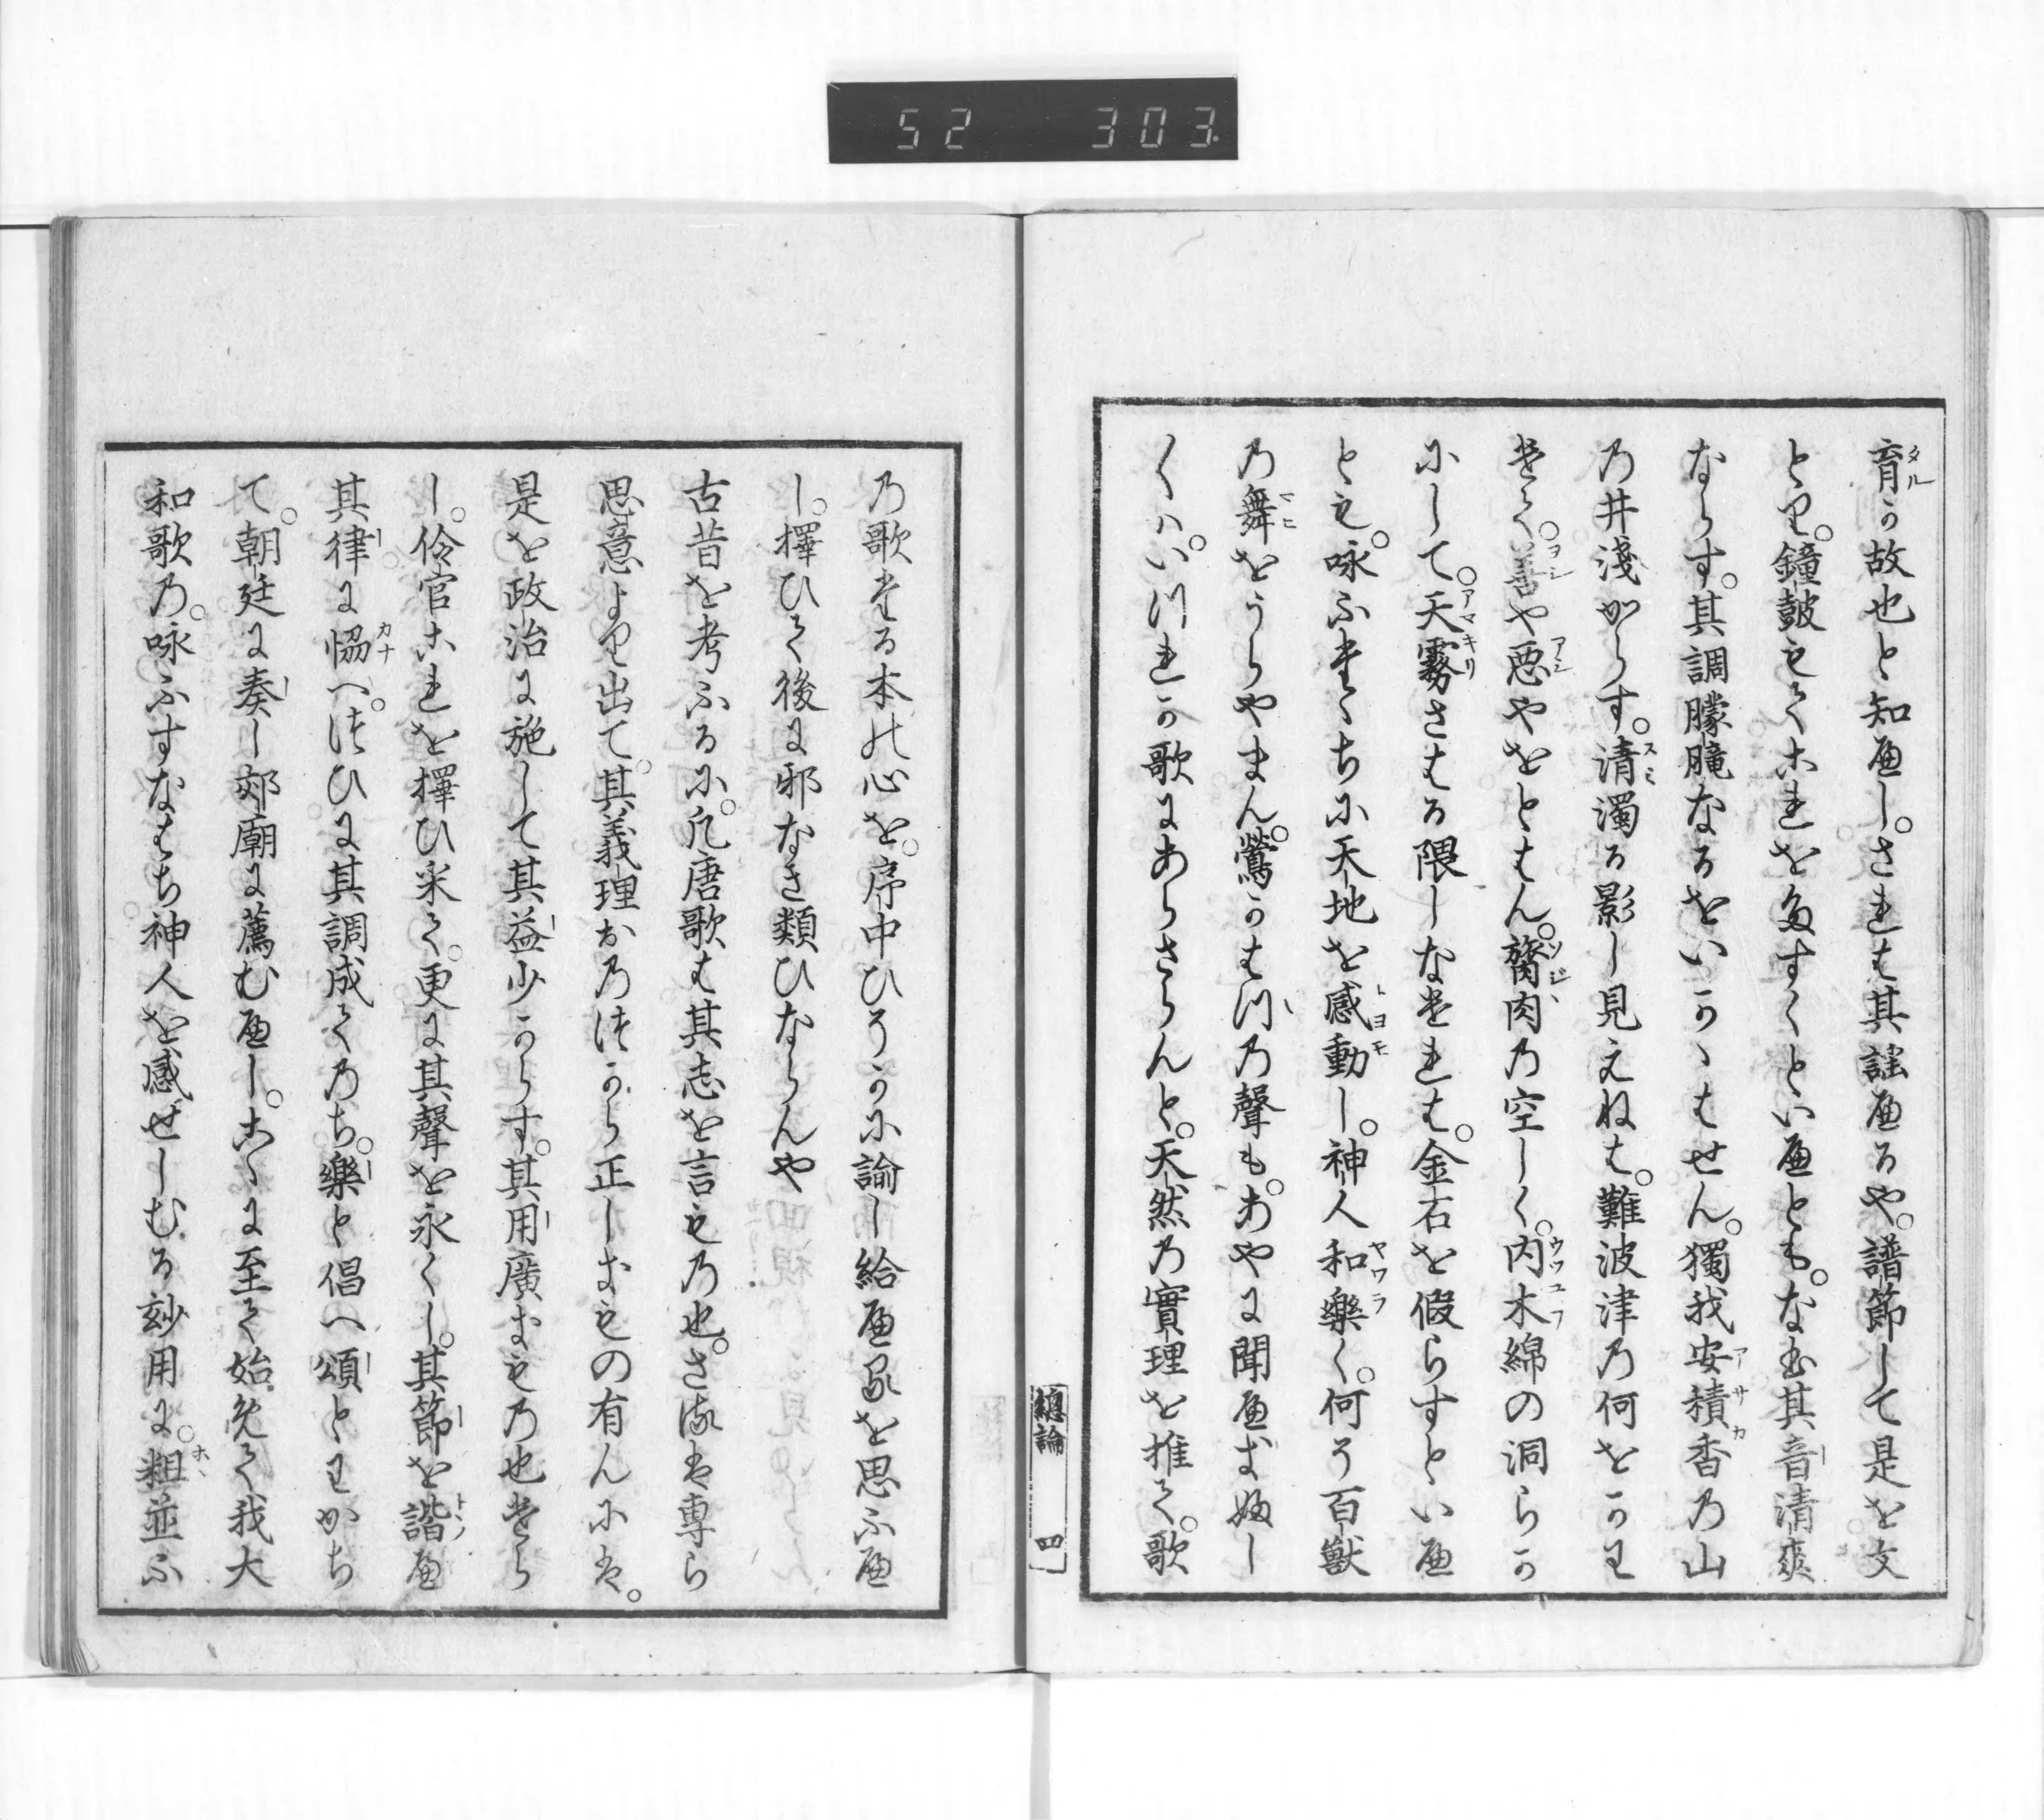 52 303.
育か故也と知へし。されは其謡へるや。譜節して是を文
とり。鐘皷もてこれをたすくといへとも。なほ其音清爽
ならす。其調朦朧なるをいかゝはせん。獨我安積香乃山
乃井淺からす。清濁る影し見えねは。難波津乃何をかり
きて。善や悪やをとはん。膂肉乃空しく。内木綿の洞らか
にして。天霧さはる隈しなけれは。金石を假らすといへ
とも。咏ふたゝちに天地を感動し。神人和樂く。何そ百獣
乃舞をうらやまん。鶯かはつ乃聲も。あやに聞へまほし
くハ。いつれか歌にあらさらんと。天然乃實理を推て。歌
總論 四
乃歌たる本の心を。序中ひそかに諭し給へるを思ふへ
し。擇ひて後に邪なき類ひならんや
古昔を考ふるに。凡唐歌は其志を言もの也。さるは専ら
思意より出て。其義理おのつから正しきもの有んには。
是を政治に施して其益少からす。其用廣きもの也けら
し。伶官これを擇ひ采て。更に其聲を永くし。其節を諧へ
其律に恊へ。つひに其調成てのち。樂と倡へ頌とわかち
て。朝廷に奏し郊廟に薦むへし。こゝに至て始めて我大
和歌乃。咏ふすなはち神人を感せしむる玅用に。粗並ふ